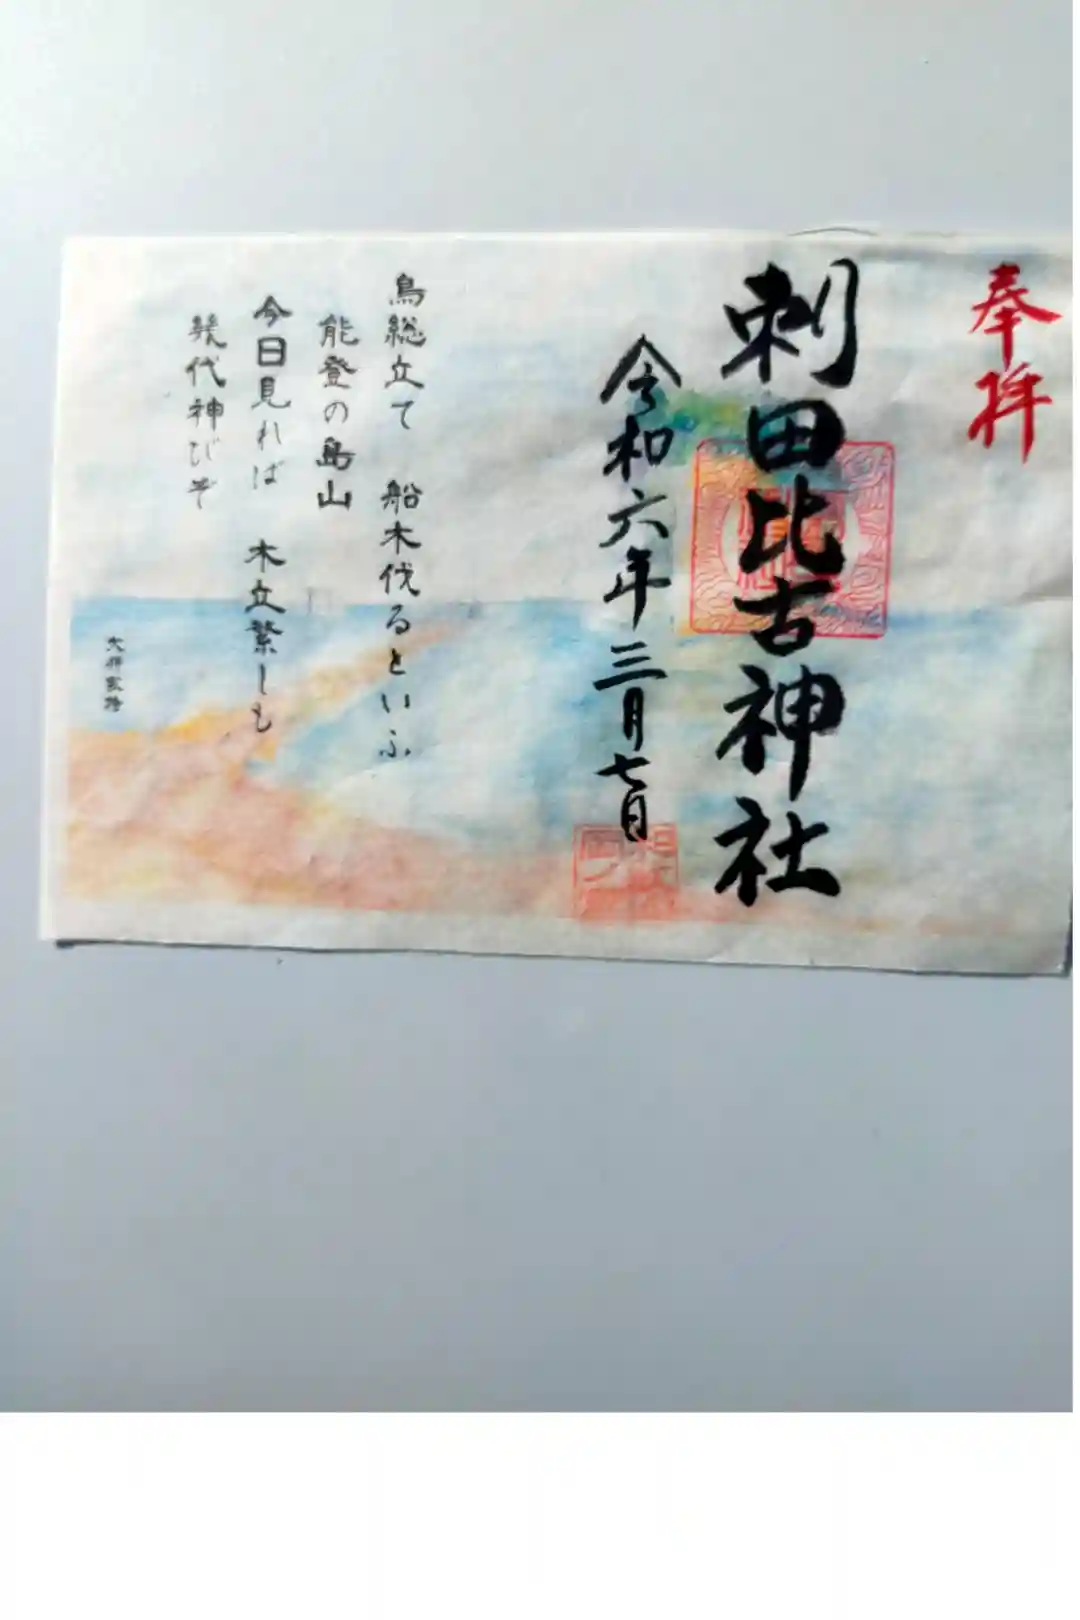 奉拝
刺田比古神社
令和六年三月七日
鳥総立て 船木伐るといふ
能登の島山
今日見れば 木立繁しも
幾代神びそ
大伴家持